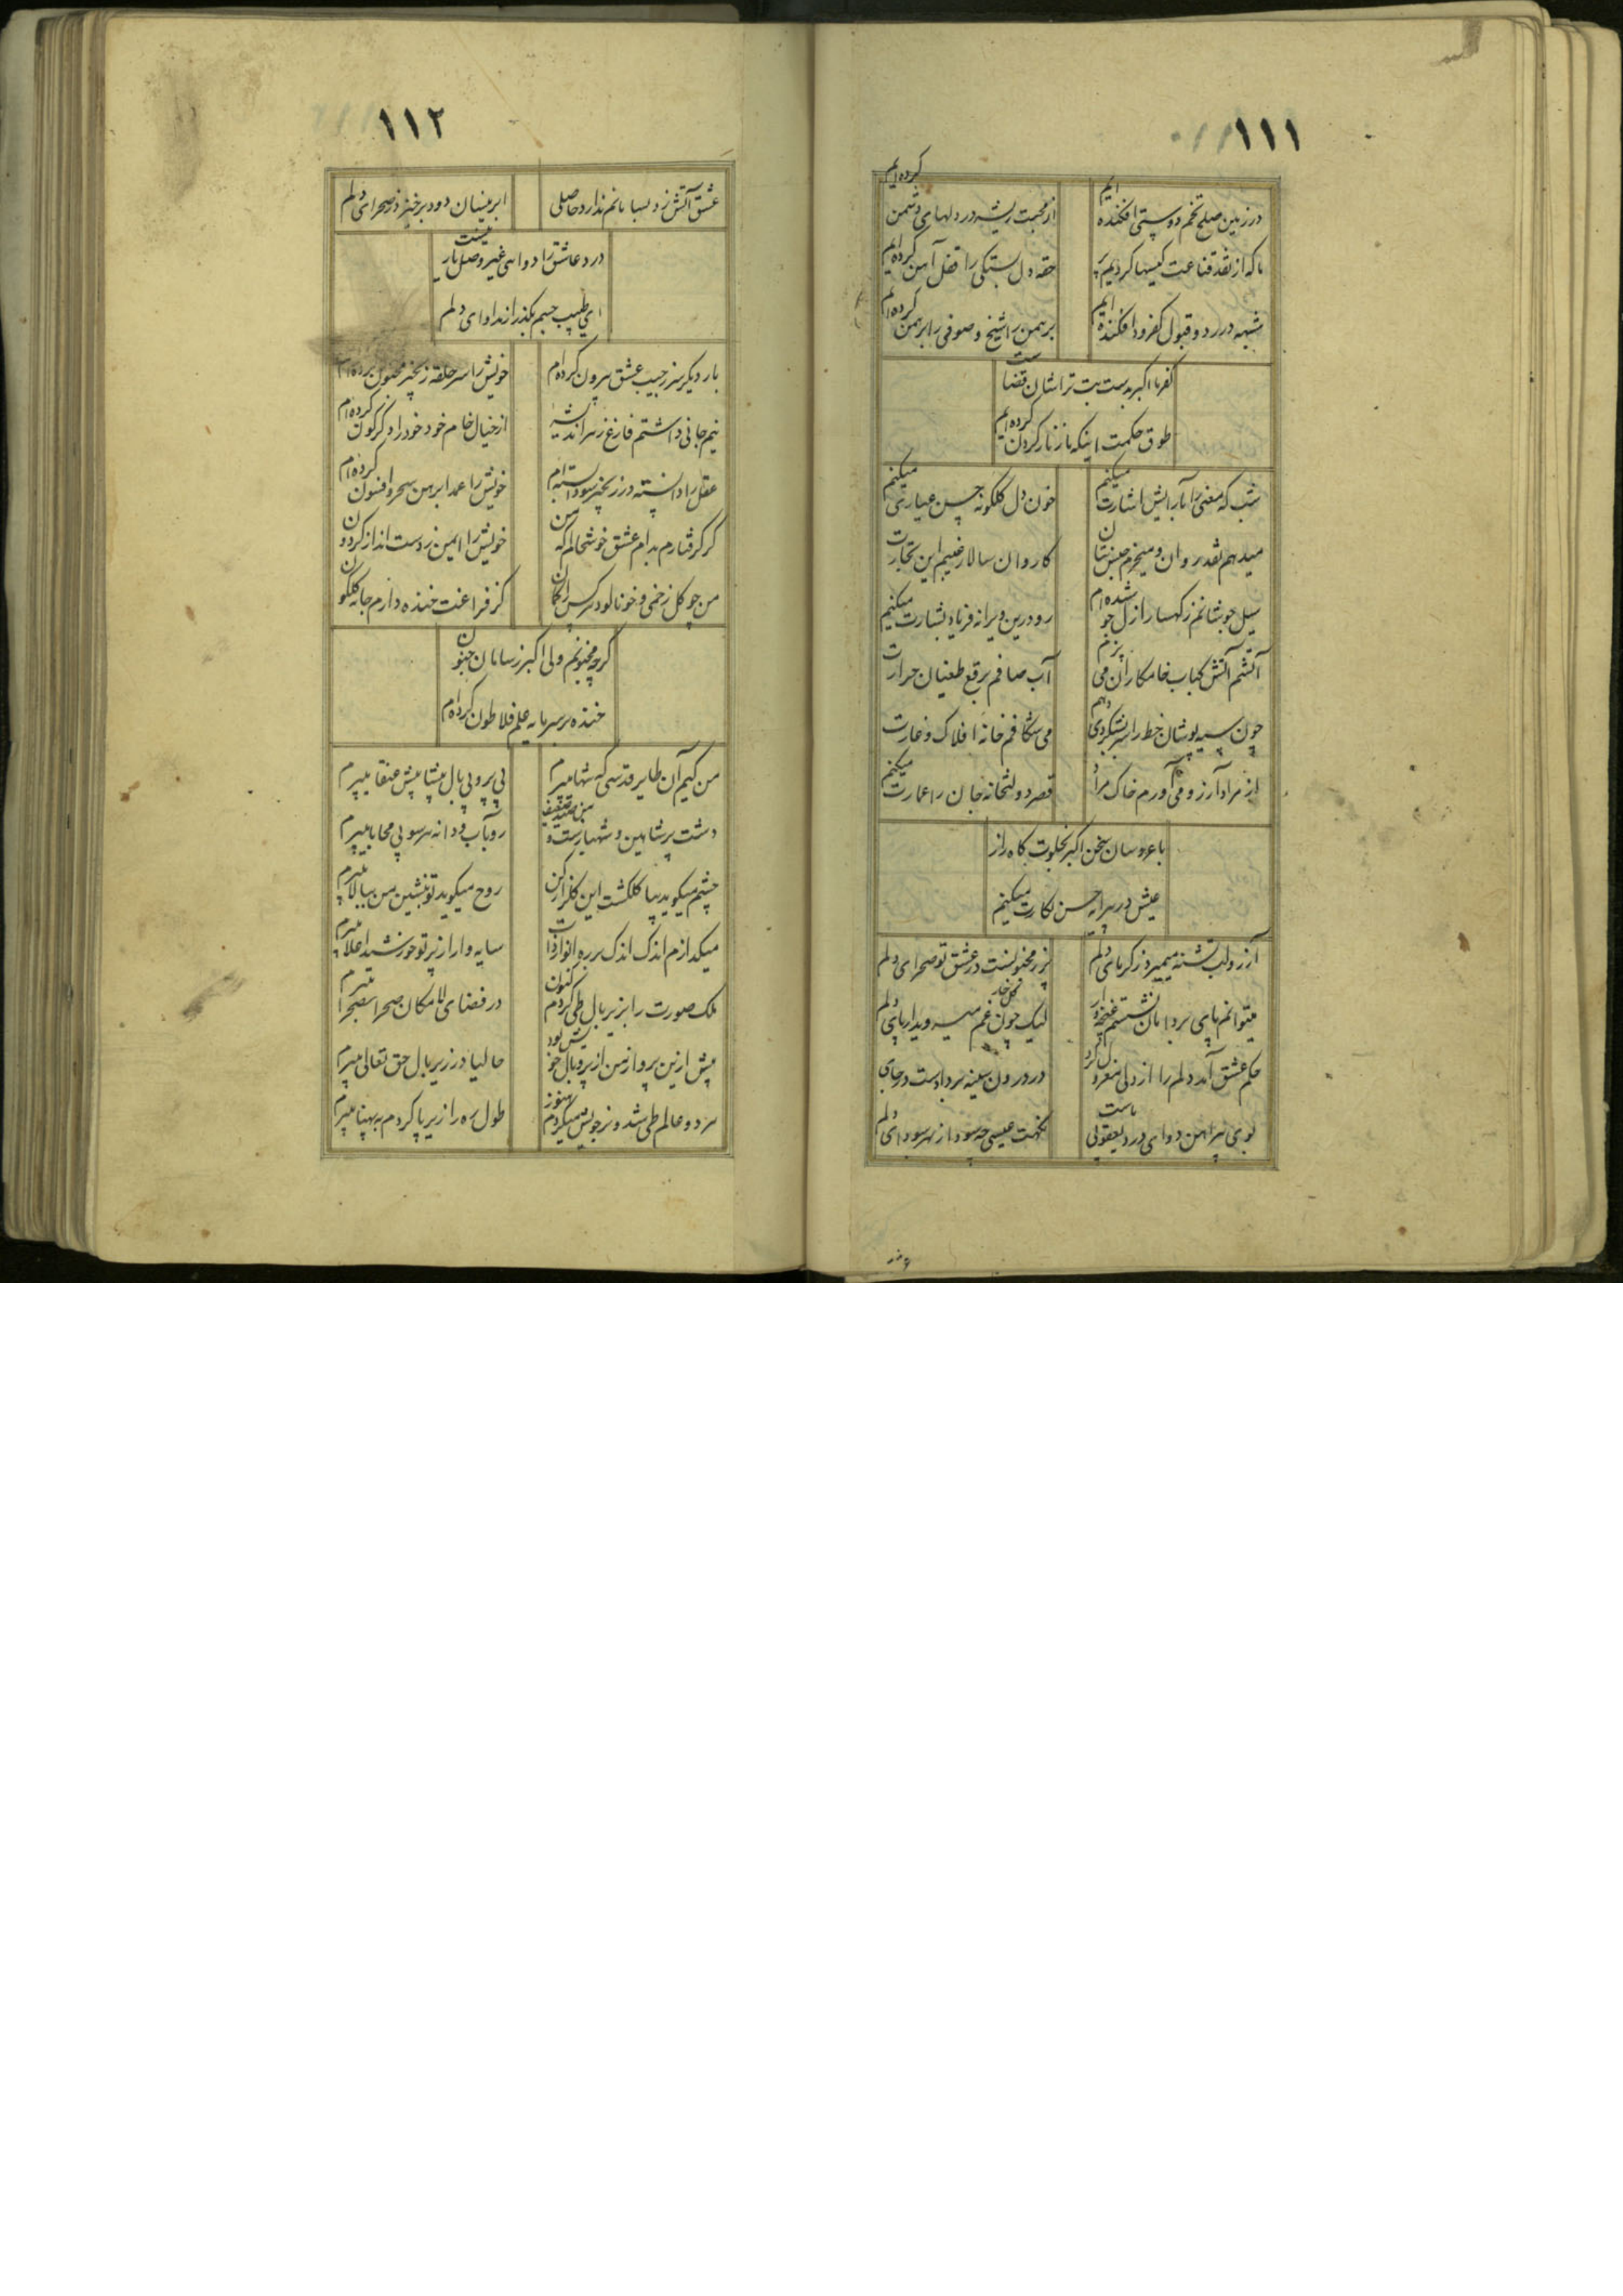 ۱۱۱
در زمین صلح تخم دوستی افکنده ایم
از محبت ریشه در دلهای دشمن کرده ایم
ما که از نقد قناعت کیسها کردیم پر
حقه دل بستگی را قفل آهن کرده ایم
شبهه در رد و قبول کفر و دین افکنده ایم
برهمن را شیخ و صوفی را برهمن کرده ایم
کفر ما اکبر بدست بت تراشان قضاست
طوق حکمت اینکه ما زنار گردن کرده ایم
شب که مغنی را بآرایش اشارت میکنم
خون دل گلگونه حسن عبارت میکنم
میدهم نقد روان و میخرم جنس بتان
کاروان سالار غیبم این تجارت
سیل جوشانم ز کهسار ازل جو شده ام
رو درین ویرانه فریاد بشارت میکنم
آتشم آتش کباب خامکاران می پزم
آب صافم برقع طغیان حرارت
چون سیه پوشان خط را سر بشکر دی دهم
می شکافم خانه افلاک و غارت
از مراد آرزو می آورم خاک مراد
قصر دولتخانه جان را عمارت میکنم
با عروسان سخن اکبر بخلوت گاه راز
عیش در پیرایه حسن بکارت میکنم
آرزو لب تشنه میمیرد ز گرمای دلم
پر ز مجنونست در عشق تو صحرای دلم
میتوانم پای بر دامان نشستم غنچه وار
لیک چون غم میرویدار پای دلم
حکم عشق آمد دلم را از دلی معزول کرد
در درون سینه سردادست در جای
بوی پیراهن دوای درد یعقوبی ماست
نکهت عیسی چه سود از بهر سودای دلم
۱۱۲
عشق آتش زد بیابانم ندارد حاصلی
ابر نیسان دود برخیزد ز صحرای دلم
درد عاشق را دوائی غیر وصل یار نیست
ای طبیب جسم بگذر از مداوای دلم
بار دیگر سر ز جیب عشق بیرون کرده ام
خویش را سر حلقه زنجیر مجنون کرده ام
نیم جانی داشتم فارغ ز هر اندیشه
از خیال خام خود خود را دگرگون کرده ام
عقل را دانسته در زنجیر سودا بسته ام
خویش را عمدا برهن سحر و افسون کرده ام
گر گرفتارم بدام عشق خوشحالم که من
خویش را ایمن ز دست انداز گردون
من چو گل زخمی و خونالود
کز فراغت خنده دارم جامه گلگون
گرچه مجنونم ولی اکبر ز سامان جنون
خنده بر سرمایه علم فلاطون کرده ام
من کیم آن طایر قدسی که شبها میپرم
بی پر و بی بال پیشاپیش عنقا میپرم
دشت پر شاهین و شهبازست و من صید ضعیف
رو بآب و دانه هر سو بی محابا میپرم
چشم میگوید بیا گلگشت این گلزار کن
روح میگوید تو بنشین من ببالا میپرم
میگدازم اندک اندک بر ره انوار ذات
سایه وار از پرتو خورشید اعلا میپرم
ملک صورت را بزیر بال طی کردم کنون
در فضای لامکان صحرا بصحرا میپرم
پیش ازین پرواز من از پر و بال خویش بود
حالیا در زیر بال حق تعالی میپرم
هر دو عالم طی شد و نز خویش میگردم هنوز
طول ره را زیر پا کردم به پهنا میپرم